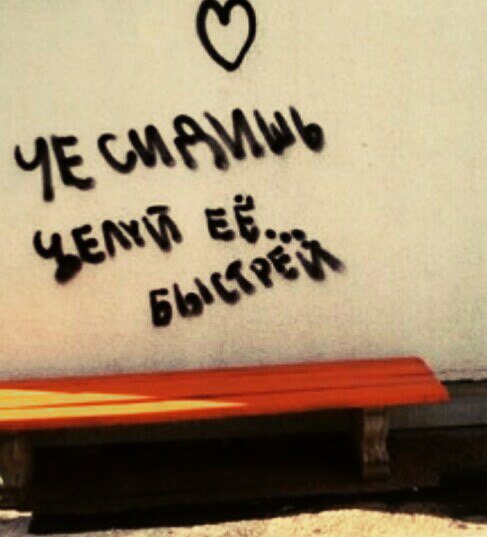 ЧЕ СИДИШЬ
ЦЕЛУЙ ЕЁ...
БЫСТРЁЙ